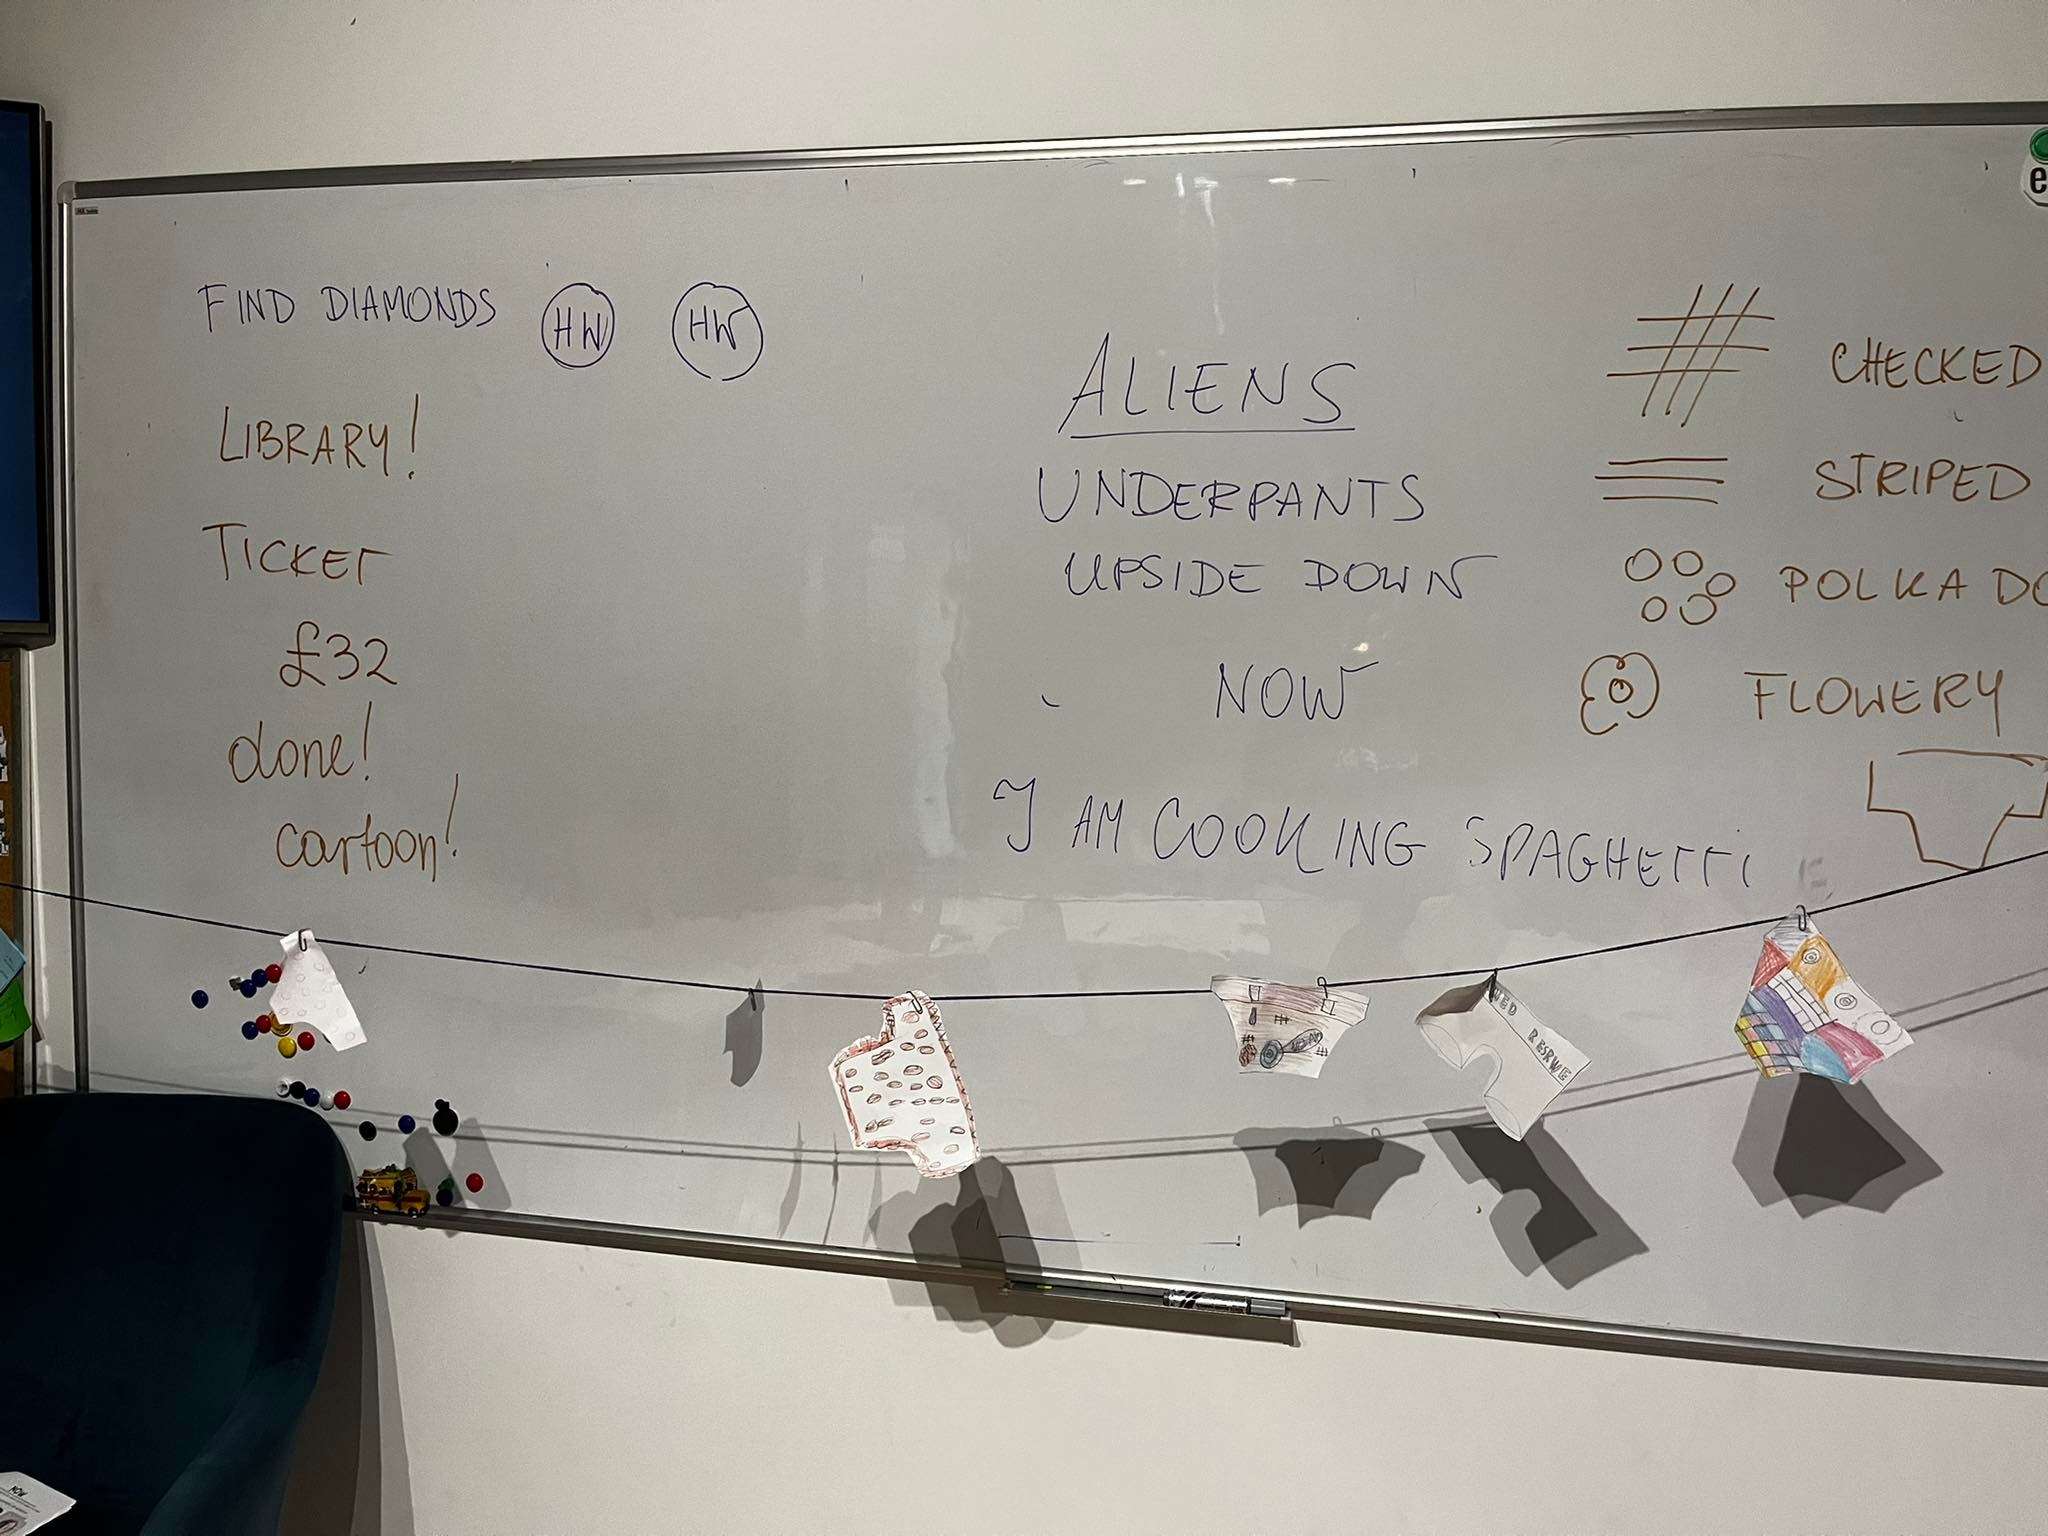 FIND DIAMONDS HW HW
LIBRARY!
TICKET
£32
done!
cartoon!
ALIENS
UNDERPANTS
UPSIDE DOWN
NOW
I AM COOKING SPAGHETTI
CHECKED
STRIPED
POLKA DO
FLOWERY
e
RESRWE
NOW